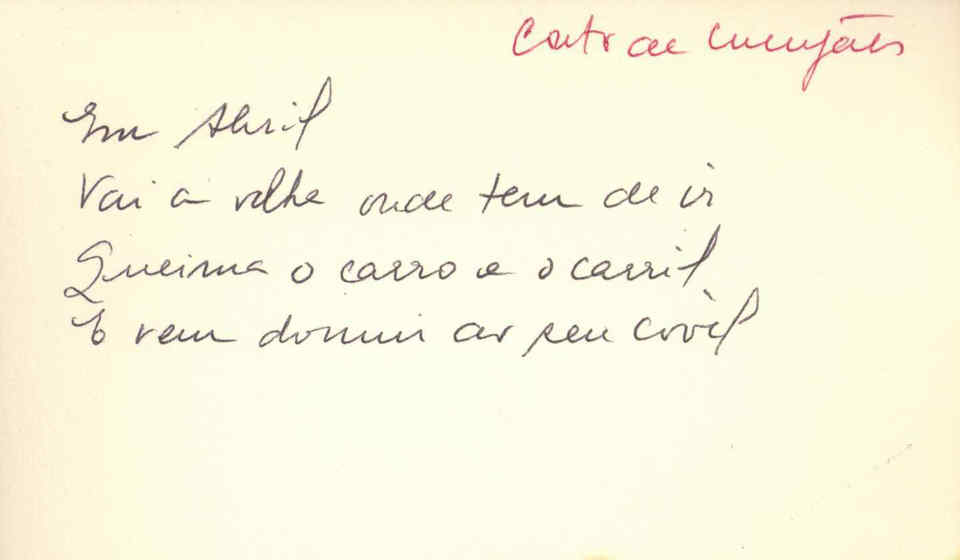 Couto de Cucujães
Em Abril
Vai a velha onde tem de ir
Queima o carro e o carril
E vem dormir ao seu covil